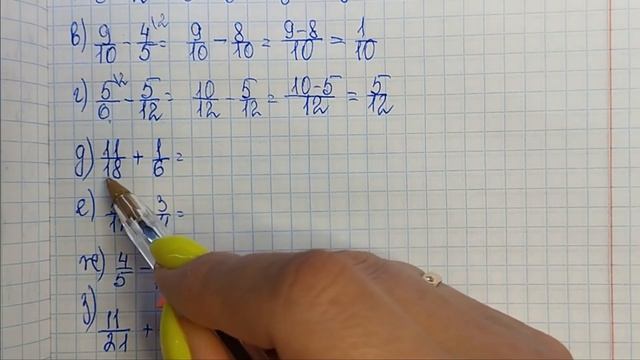 в) 9/10 - 4/5\2 = 9/10 - 8/10 = (9-8)/10 = 1/10
г) 5/6\2 - 5/12 = 10/12 - 5/12 = (10-5)/12 = 5/12
д) 11/18 + 1/6 =
е) 3/ =
ж) 4/5 -
з) 11/21 +